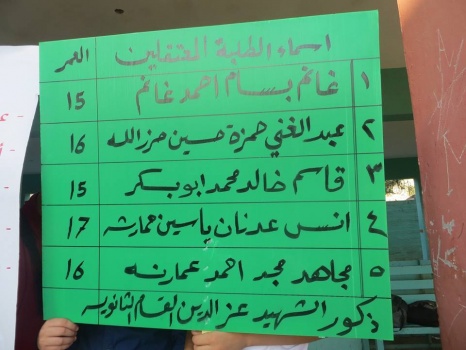 اسماء الطلبة المعتقلين العمر
١ غانم بسام احمد غانم 15
٢ عبدالغني حمزة حسين حرزالله 16
٣ قاسم خالد محمد ابوبكر 15
٤ انس عدنان ياسين عمارنه 17
٥ مجاهد مجد احمد عمارنه 16
ذكور الشهيد عز الدين القسام الثانويه